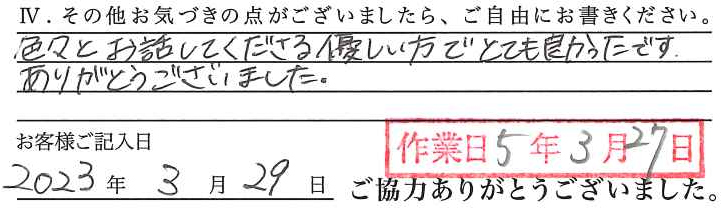 Ⅳ．その他お気づきの点がございましたら、ご自由にお書きください。
色々とお話してくださる優しい方でとても良かったです.
ありがとうございました。
お客様ご記入日
作業日5年3月27日
2023年 3月29日
ご協力ありがとうございました。